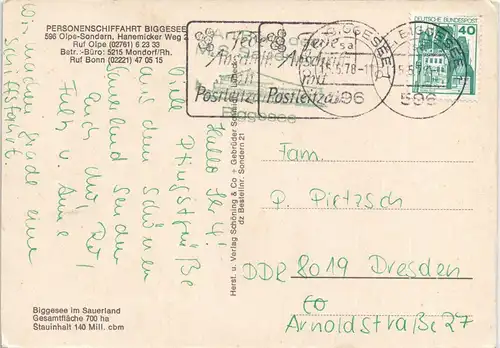 PERSONENSCHIFFAHRT BIGGESEE
596 Olpe-Sondern, Hanemicker Weg 2
Ruf Olpe (02761) 6 23 33
Betr.-Büro: 5215 Mondorf/Rh.
Ruf Bonn (02221) 47 05 15
Jede
Anschrift
mit
Postleitzahl
BIGGESEE
5.78-11
596
DEUTSCHE BUNDESPOST
40
Biggesee
Hallo Ihr 4!
Viele Pfingstgrüße
aus dem schönen
Sauerland senden
Euch
Fritz u. Anne
Wir machen gerade eine
Schiffsfahrt.
Herst. u. Verlag Schöning & Co + Gebrüder
dz Bestellnr. Sondern 21
Fam.
P. Pietzsch
DDR 8019 Dresden
Arnoldstraße 27
Biggesee im Sauerland
Gesamtfläche 700 ha
Stauinhalt 140 Mill. cbm